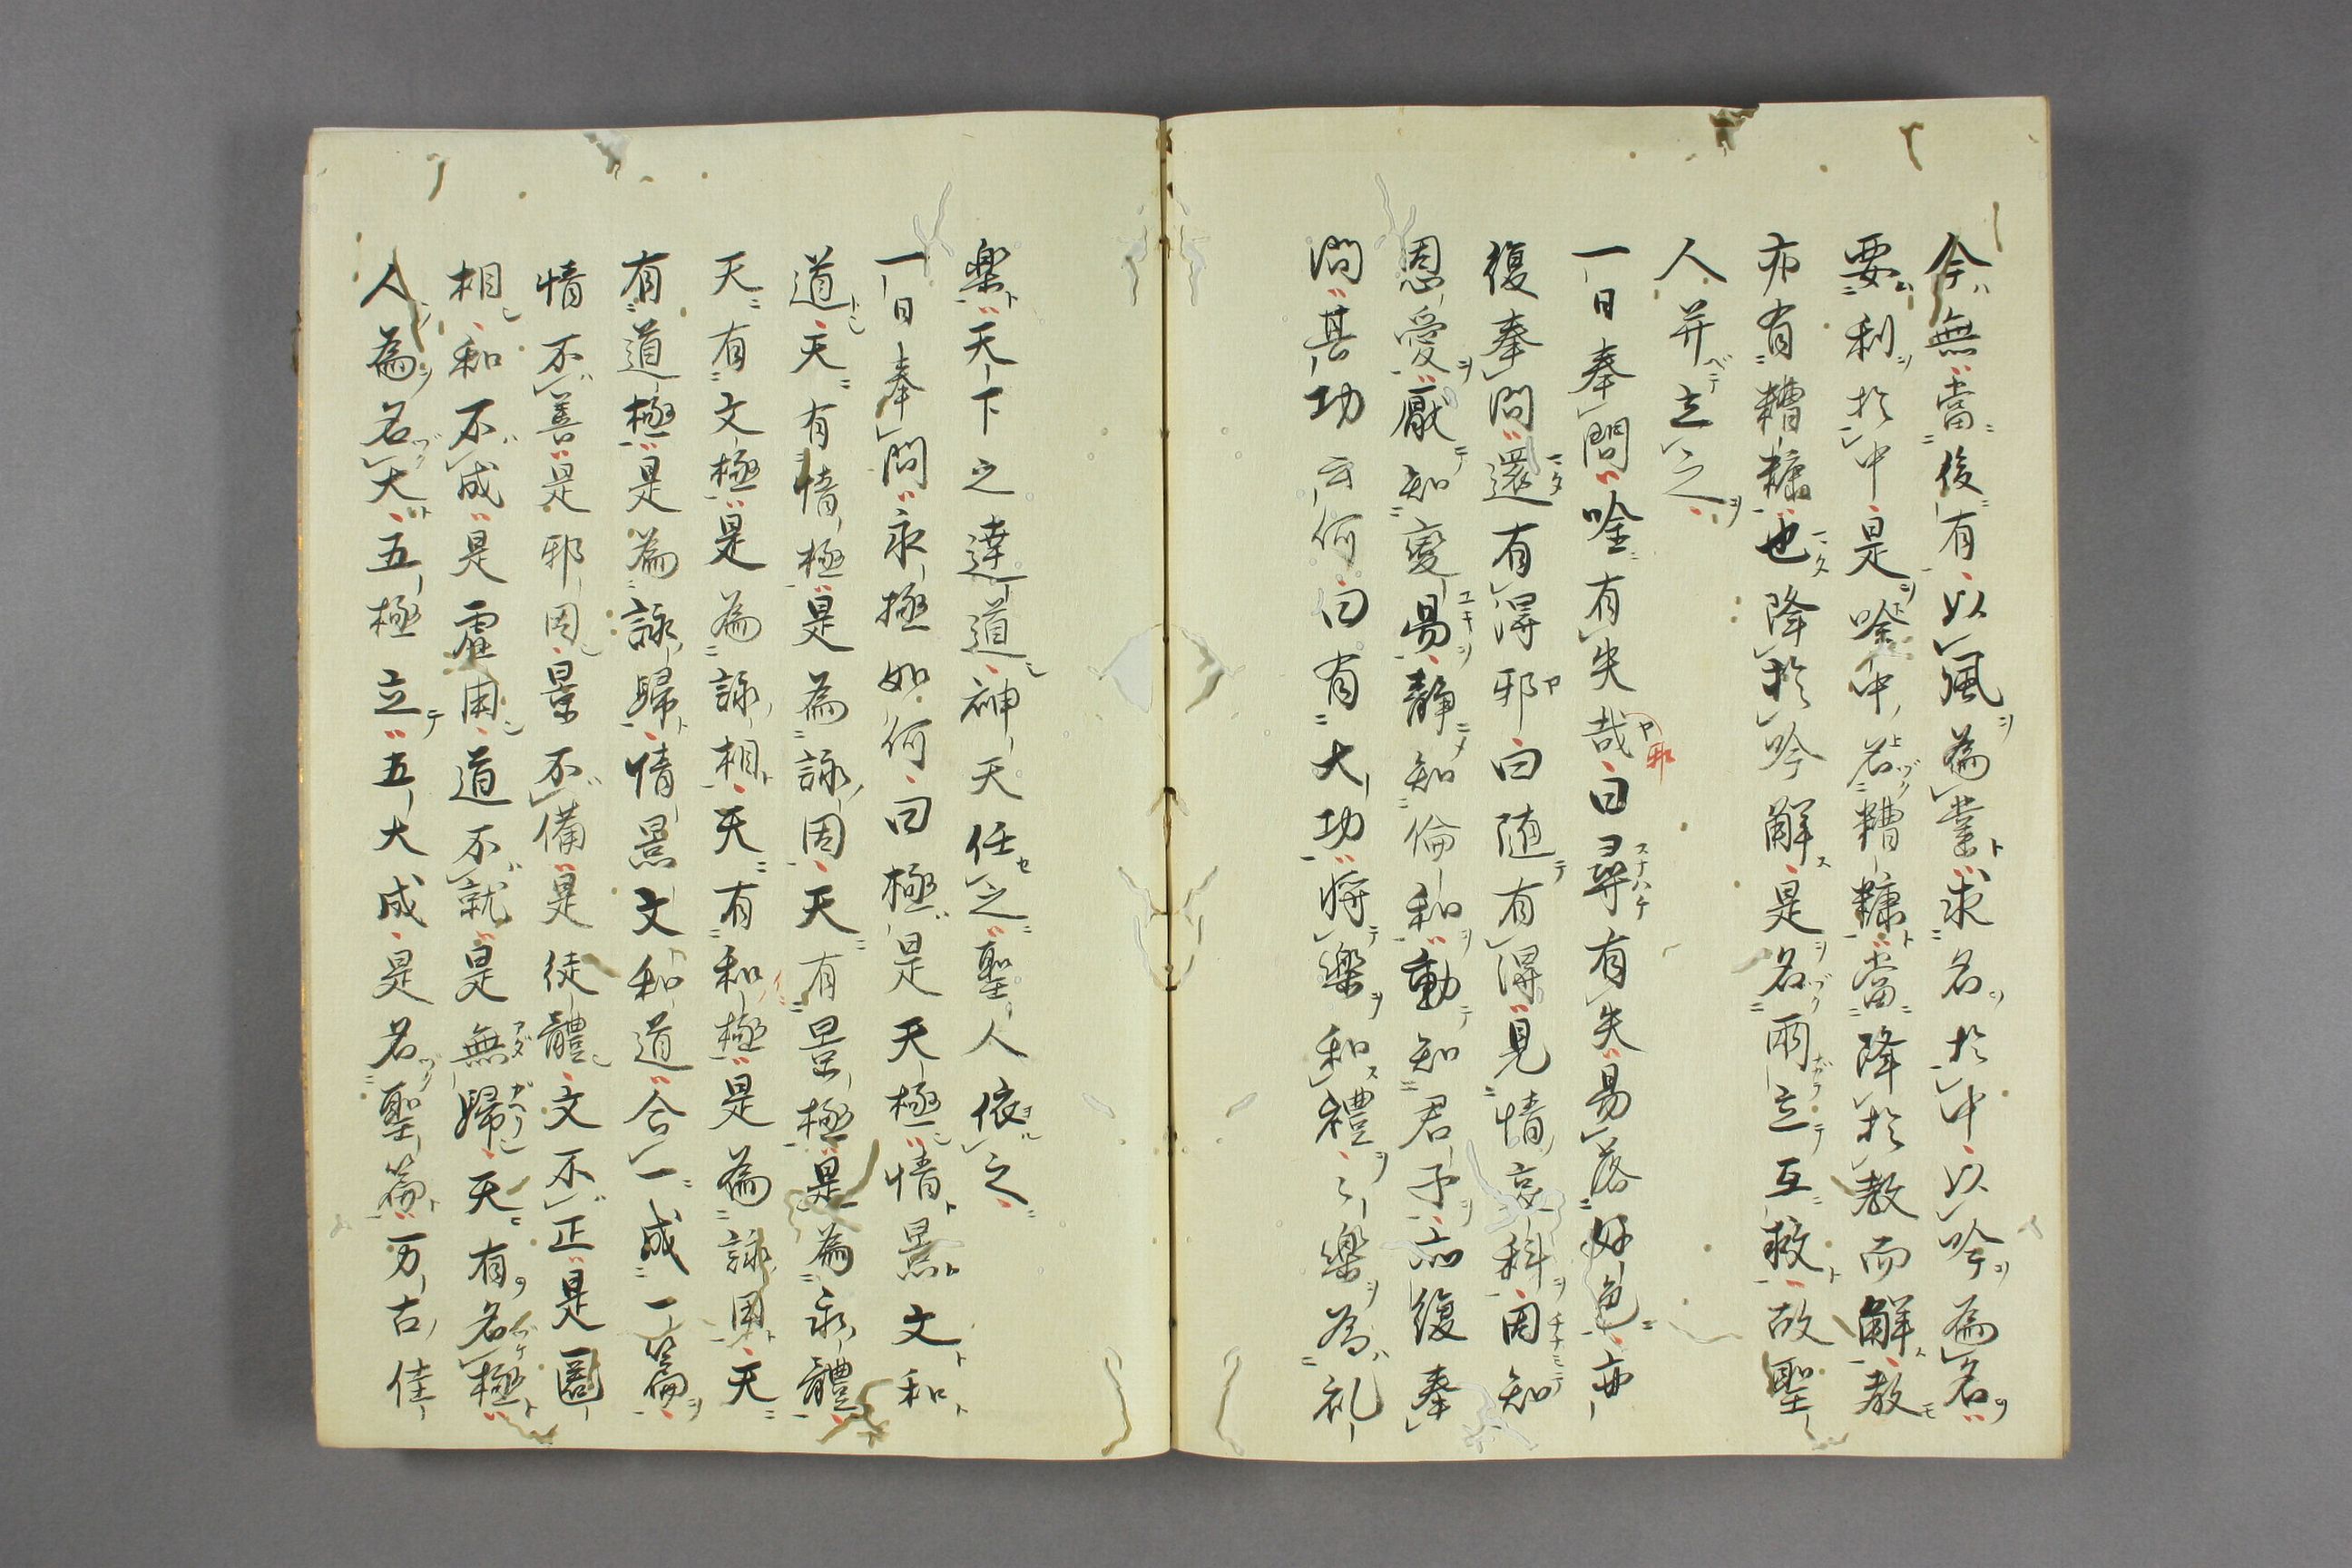 今無當後有以風為業求名於中以吟為名
要利於中是唫中名糟糠當降於教而解教
亦有糟糠也降於吟解是名兩立互救故聖
人并立之
一日奉問唫有失哉曰尋有失易落好色亦
復奉問還有得邪曰随有得見情哀科因知
恩愛厭知變易靜知倫和動知君子亦復奉
問其功云何曰有大功将樂和禮〻樂為礼
樂天下之達道神天任之聖人依之
一日奉問永極如何曰極是天極情景文和
道天有情極是為詠因天有景極是為永體
天有文極是為詠相天有和極是為詠用天
有道極是為詠歸情景文和道合一成一篇
情不善是邪因景不備是徒體文不正是圖
相和不成是虛用道不就是無歸天有名極
人為名大五極立五大成是名聖篇万古佳